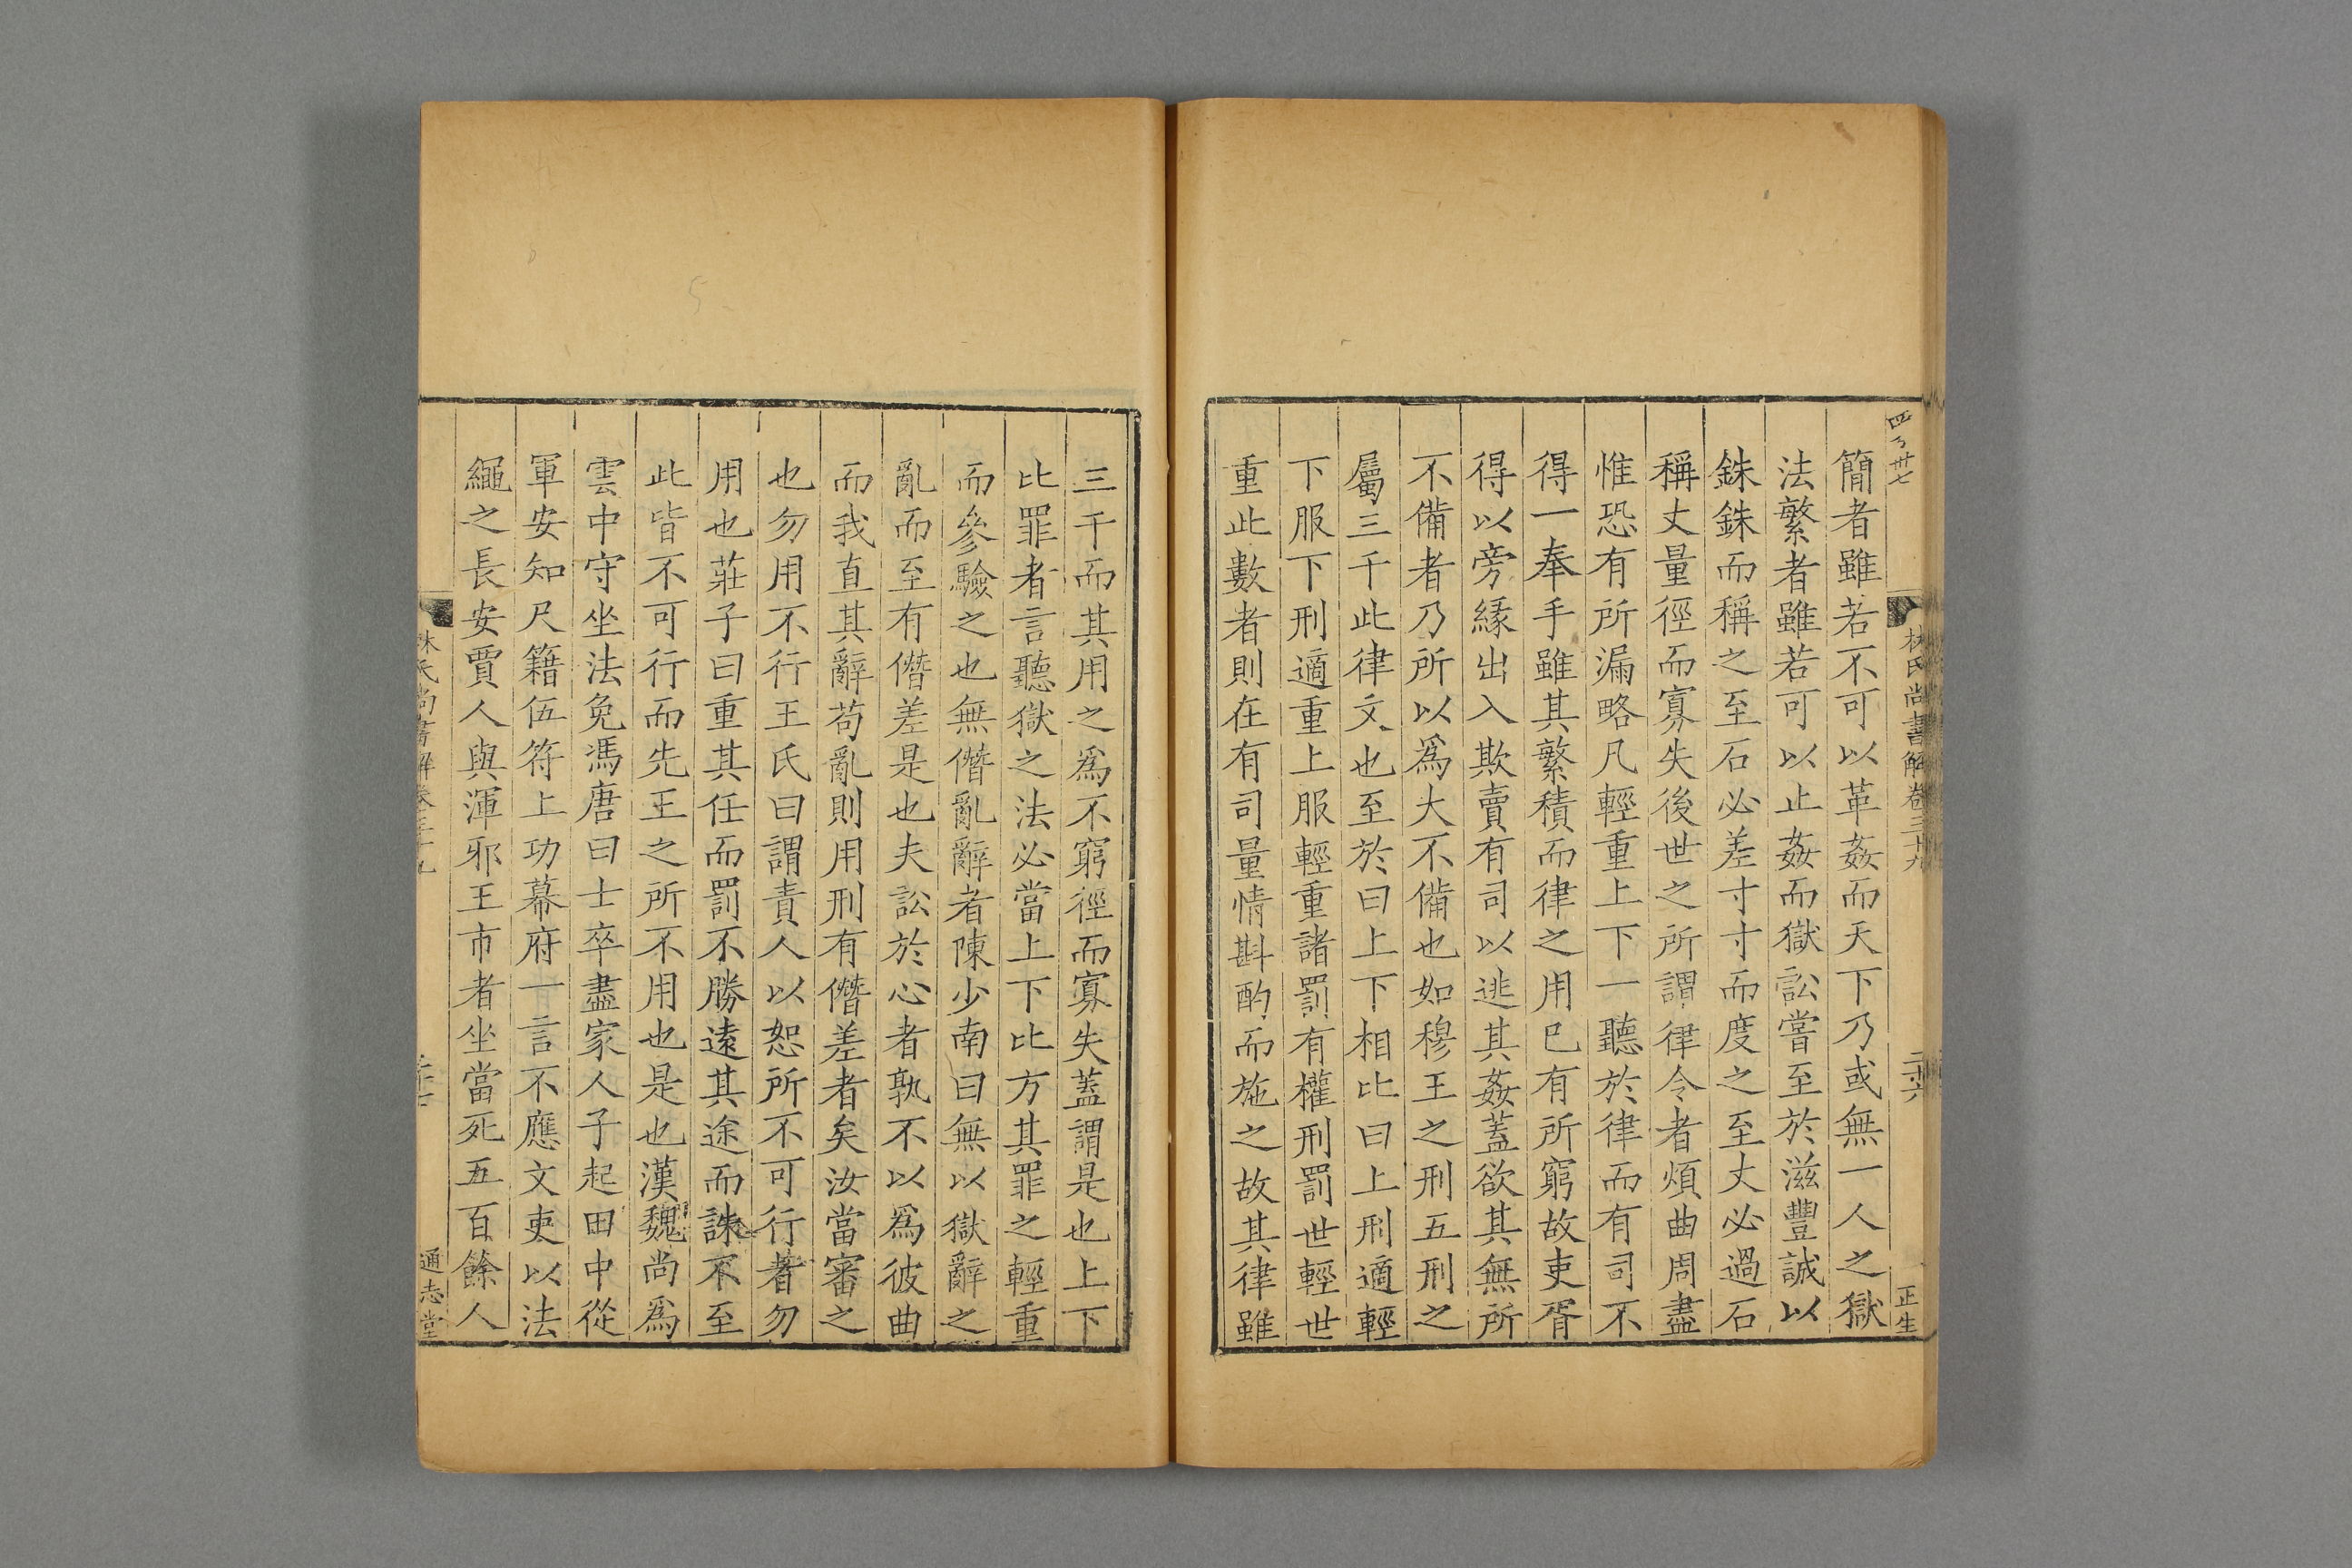 四百卅七
林氏尚書解卷三十九
二十六
正生
簡者雖若不可以革姦而天下乃或無一人之獄
法繁者雖若可以止姦而獄訟嘗至於滋豐誠以
銖銖而稱之至石必差寸寸而度之至丈必過石
稱丈量徑而寡失後世之所謂律令者煩曲周盡
惟恐有所漏略凡輕重上下一聽於律而有司不
得一奉手雖其繁積而律之用巳有所窮故吏胥
得以旁緣出入欺賣有司以逃其姦蓋欲其無所
不備者乃所以爲大不備也如穆王之刑五刑之
屬三千此律文也至於曰上下相比曰上刑適輕
下服下刑適重上服輕重諸罰有權刑罰世輕世
重此數者則在有司量情斟酌而施之故其律雖
三千而其用之爲不窮徑而寡失蓋謂是也上下
比罪者言聽獄之法必當上下比方其罪之輕重
而參驗之也無僭亂辭者陳少南曰無以獄辭之
亂而至有僭差是也夫訟於心者孰不以爲彼曲
而我直其辭苟亂則用刑有僭差者矣汝當審之
也勿用不行王氏曰謂責人以恕所不可行者勿
用也莊子曰重其任而罰不勝遠其途而誅不至
此皆不可行而先王之所不用也是也漢魏尚爲
雲中守坐法免馮唐曰士卒盡家人子起田中從
軍安知尺籍伍符上功幕府一言不應文吏以法
繩之長安賈人與渾邪王市者坐當死五百餘人
林氏尚書解卷三十九
二十七
通志堂